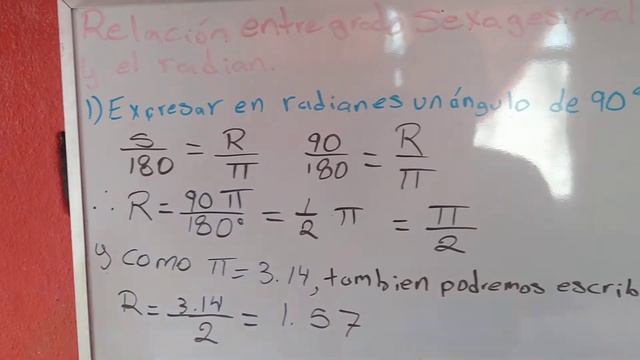 Relación entre grado Sexagesimal
y el radian.
1) Expresar en radianes un ángulo de 90°
S/180 = R/π 90/180 = R/π
∴ R = 90 π/180° = 1/2 π = π/2
y como π = 3.14, tambien podremos escrib
R = 3.14/2 = 1.57